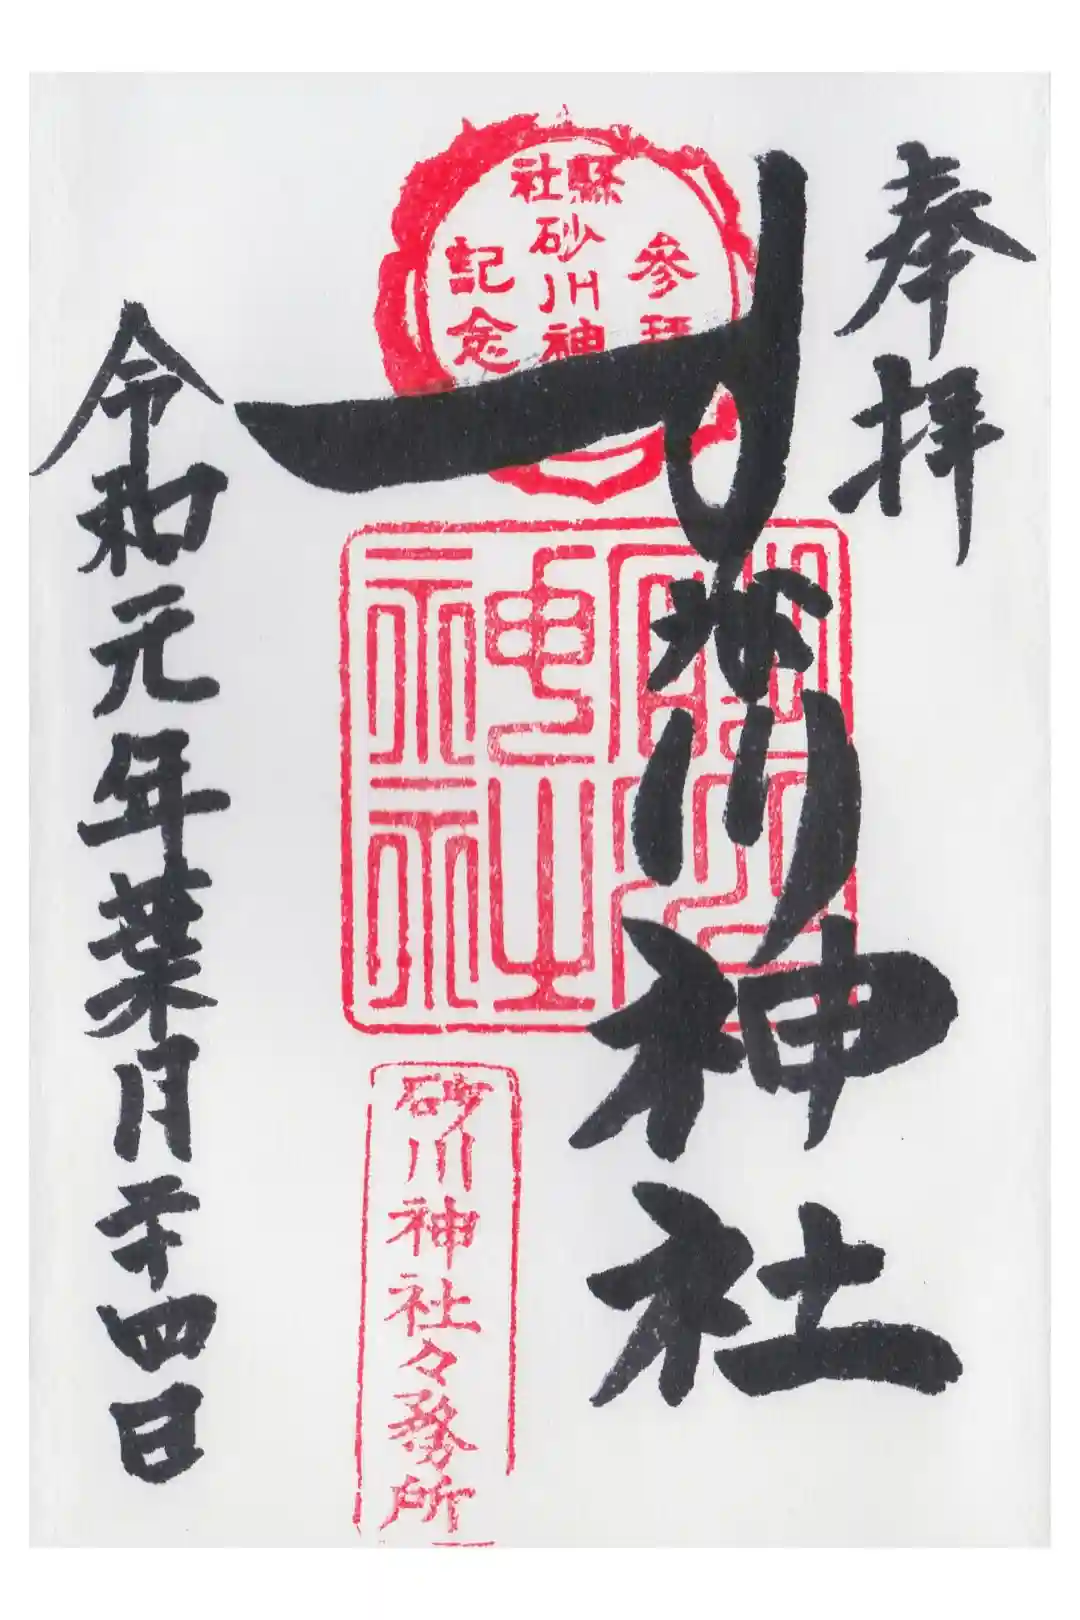 奉拝
砂川神社
令和元年葉月二十四日
縣社
參拜
砂川神
記念
砂川神社々務所